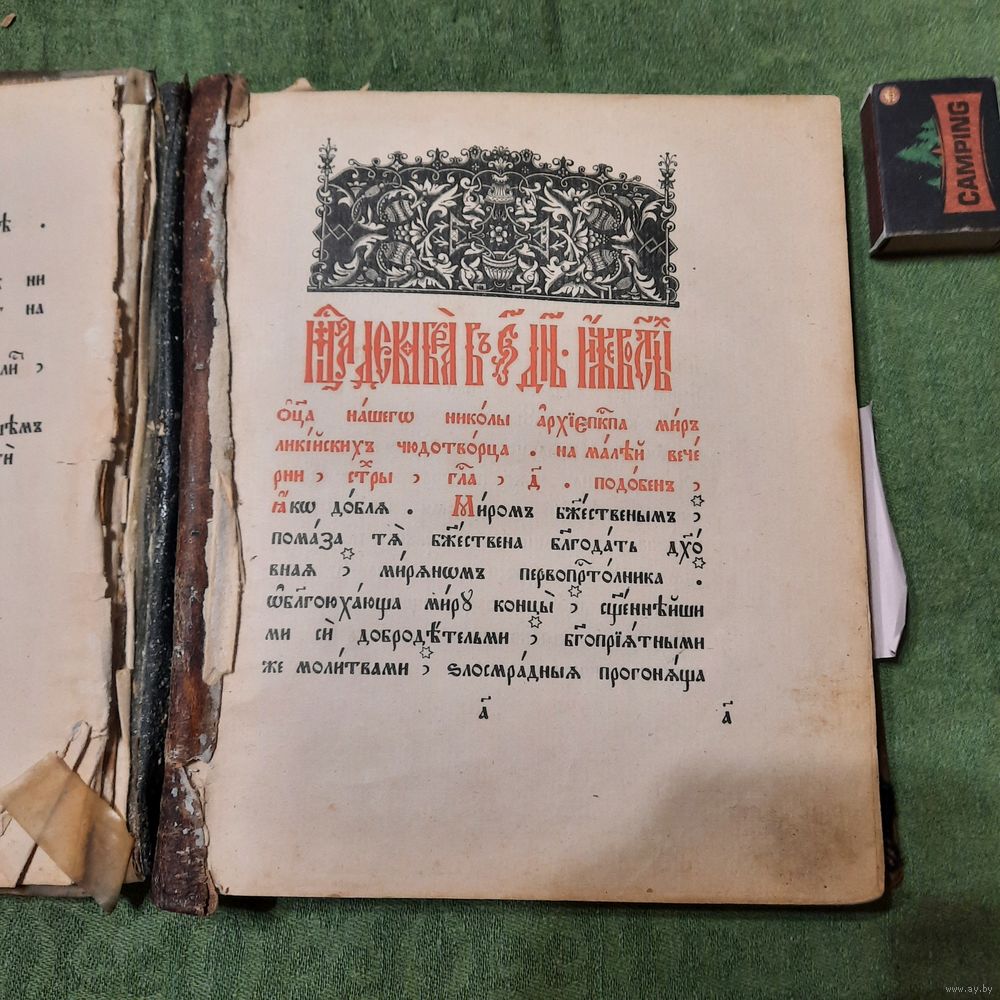 ѣ .
ни
на
гѣмъ
Мц̑а декабрѧ̀ въ ѕ҃ дн҃ь. и҆́же во ст҃ы́хъ
Ѻ҆ц҃а на́шегѡ нико́лы а҆рхїеп҇кпа мѵръ
лики́йскихъ чюдотво́рца . на ма́лѣй вече́
рни , ст҇ры , гла҇ , д҃ . подо́бенъ ,
Ꙗ҆́кѡ до́блѧ . Ми́ромъ бж҇е́ственымъ ,
пома́за тѧ̀ бж҇е́ствена блг҇ода́ть дх҇о́
внаѧ , ми́рѧнѡмъ первопрт҇о́лника .
ѡ҆блг҇оюха́юща ми́рꙋ концы̀ , сщ҇е́ннѣйши
ми сѝ доброд̾ѣ́тельми , бг҇опрїѧ́тными
же моли́твами , ѕлосмра́дныѧ прогонѧ́юща
а҃ а҃
CAMPING
www.ay.by